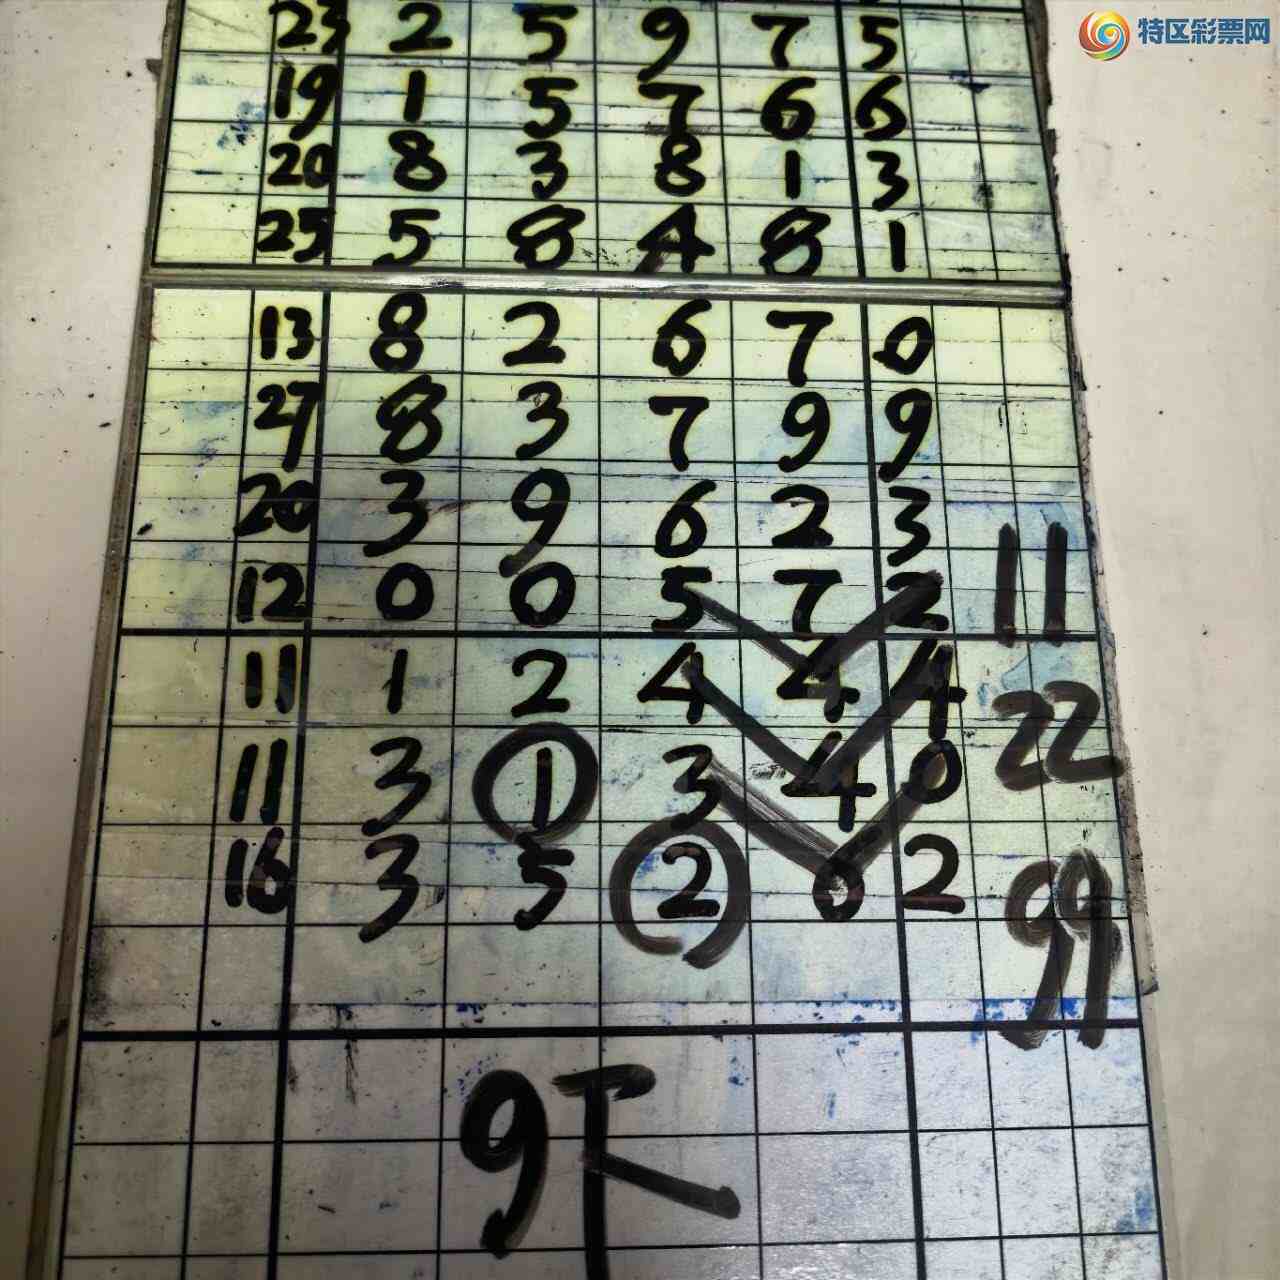 特区彩票网
23 2 5 9 7 5
19 1 5 7 6 6
20 8 3 8 1 3
25 5 8 4 8 1
13 8 2 6 7 0
27 8 3 7 9 9
20 3 9 6 2 3
12 0 0 5 7 2
11
11 1 2 4 4 4
22
11 3 1 3 4 0
16 3 5 2 0 2
99
9下